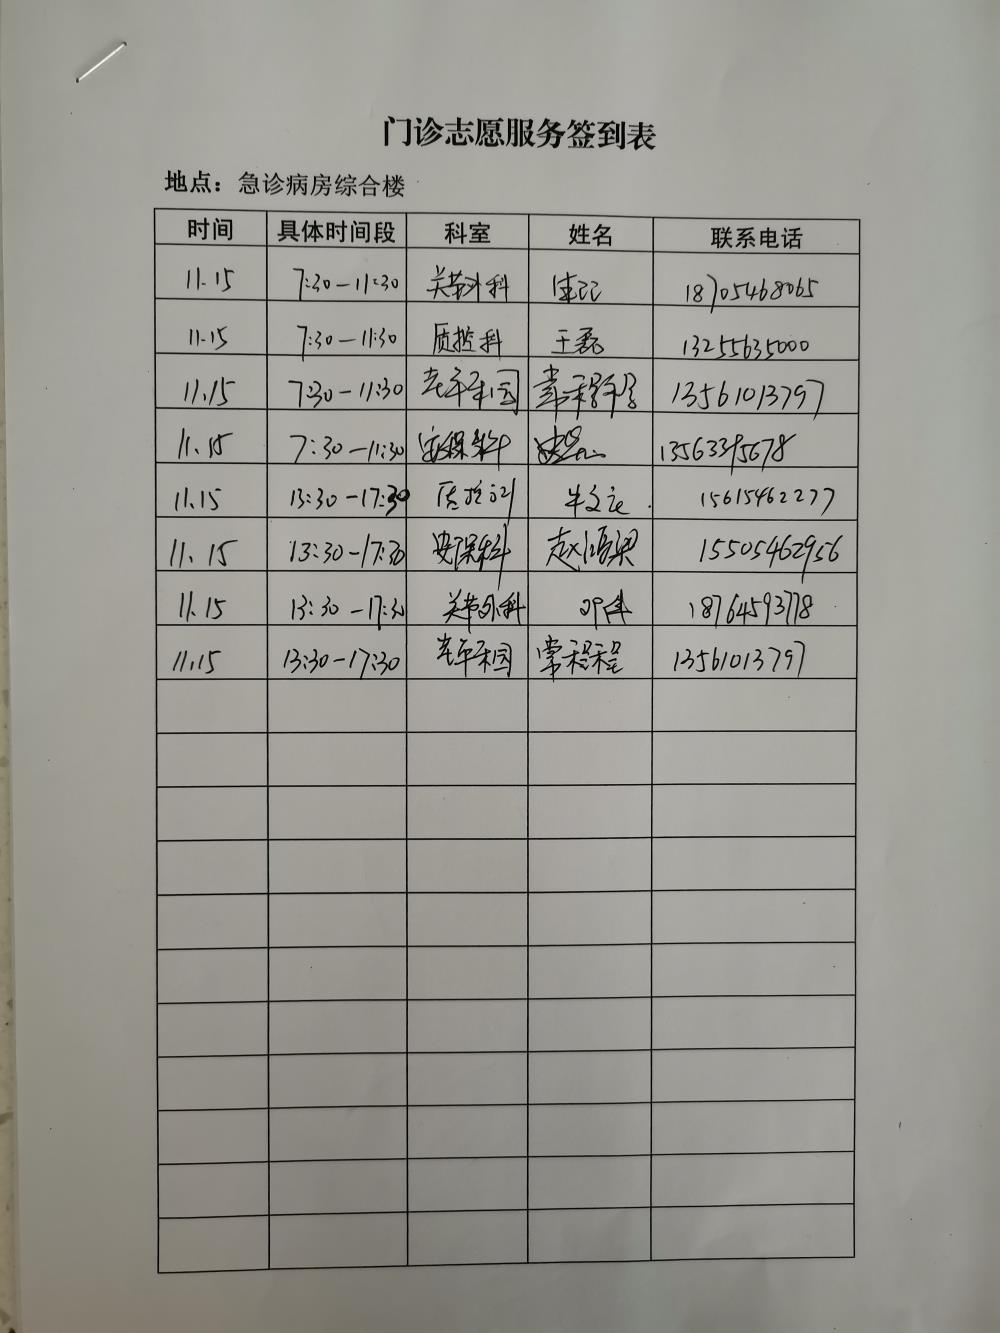 门诊志愿服务签到表
地点：急诊病房综合楼
时间 具体时间段 科室 姓名 联系电话
11.15 7:30-11:30 关节外科 18705468065
11.15 7:30-11:30 质控科 王磊 13255635000
11.15 7:30-11:30 老年病园 常程程 13561013797
11.15 7:30-11:30 安保科 13563395678
11.15 13:30-17:30 质控科 牛文 15615462277
11.15 13:30-17:30 安保科 赵 梁 15505462956
11.15 13:30-17:30 关节外科 18764593778
11.15 13:30-17:30 常程程 13561013797